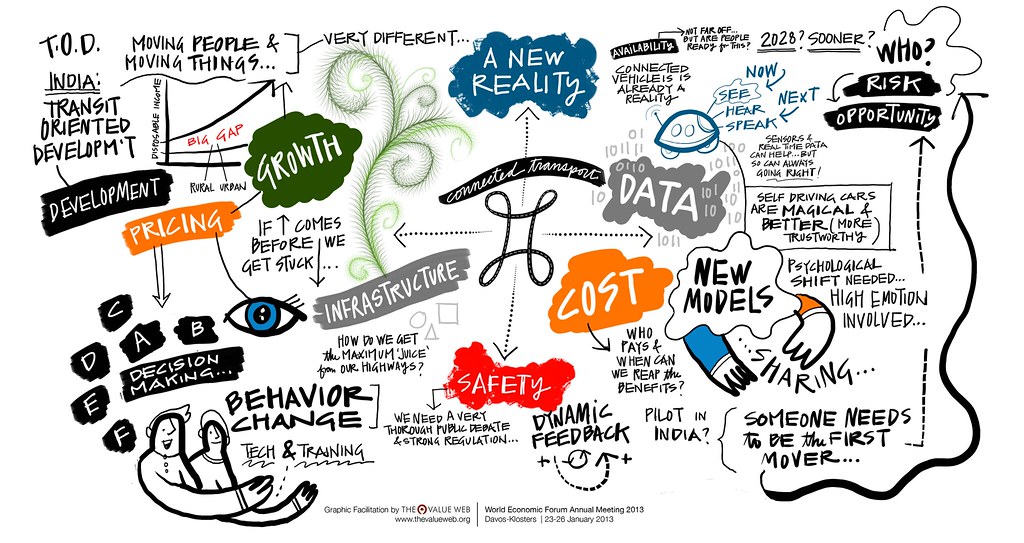 T.O.D.
INDIA:
TRANSIT
ORIENTED
DEVELOPM'T
DEVELOPMENT
MOVING PEOPLE &
MOVING THINGS...
VERY DIFFERENT...
DISPOSABLE INCOME
BIG GAP
RURAL URBAN
GROWTH
PRICING
IF ↑ COMES
BEFORE WE
GET STUCK...
A NEW
REALITY
connected transport
INFRASTRUCTURE
HOW DO WE GET
the MAXIMUM 'JUICE'
from OUR HIGHWAYS?
C
A
B
D
E
F
DECISION
MAKING...
BEHAVIOR
CHANGE
TECH & TRAINING
SAFETY
WE NEED A VERY
THOROUGH PUBLIC DEBATE
& STRONG REGULATION...
DYNAMIC
FEEDBACK
+ +
COST
WHO
PAYS &
WHEN CAN
WE REAP the
BENEFITS?
AVAILABILITY
NOT FAR OFF...
BUT ARE PEOPLE
READY for THIS?
2028? SOONER?
CONNECTED
VEHICLE IS IS
ALREADY A
REALITY
NOW
SEE
HEAR
SPEAK
NEXT
SENSORS &
REAL TIME DATA
CAN HELP...BUT
SO CAN ALWAYS
GOING RIGHT!
DATA
WHO?
RISK
OPPORTUNITY
SELF DRIVING CARS
ARE MAGICAL &
BETTER (MORE
TRUSTWORTHY)
NEW
MODELS
PSYCHOLOGICAL
SHIFT NEEDED...
HIGH EMOTION
INVOLVED...
SHARING...
PILOT IN
INDIA?
SOMEONE NEEDS
to BE the FIRST
MOVER...
Graphic Facilitation by THE VALUE WEB
www.thevalueweb.org
World Economic Forum Annual Meeting 2013
Davos-Klosters | 23-26 January 2013